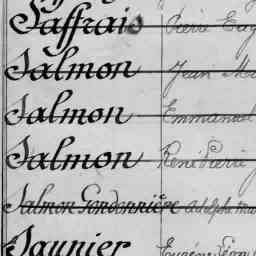 Saffrais Pierre Eug
Salmon Jean Ma
Salmon Emmanuel
Salmon René Pierre
Salmon Gondonnière Adolphe
Saunier Eugène Léon